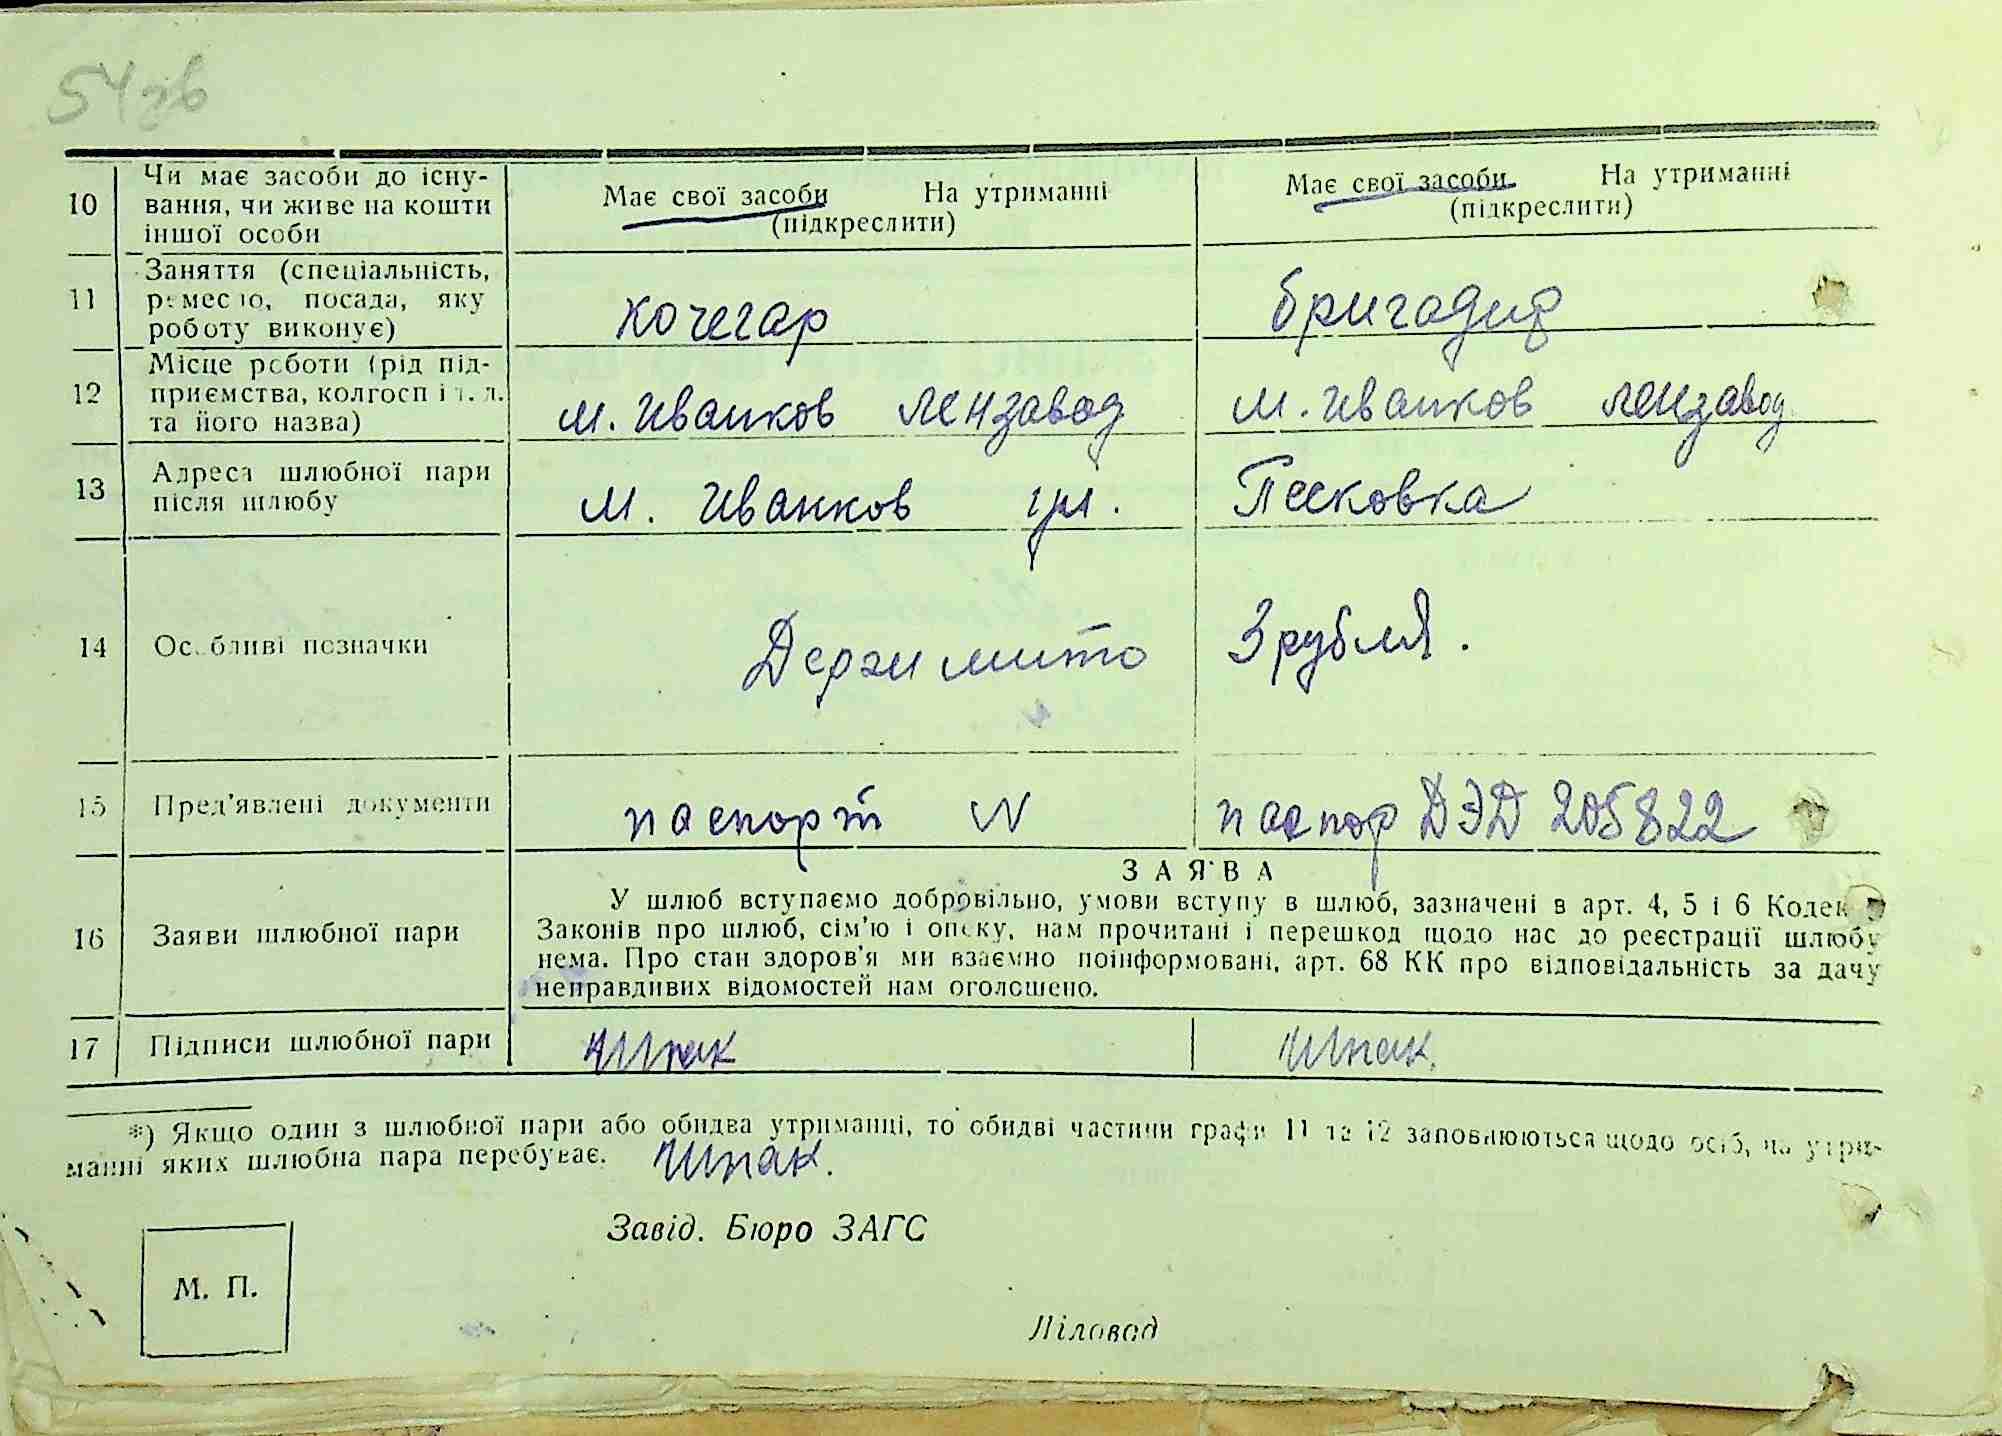 54 зв
10 Чи має засоби до існу-
вання, чи живе на кошти
іншої особи
Має свої засоби На утриманні
(підкреслити)
Має свої засоби На утриманні
(підкреслити)
11 Заняття (спеціальність,
ремесло, посада, яку
роботу виконує)
кочегар
бригадир
12 Місце роботи (рід під-
приємства, колгосп і т. д.
та його назва)
м. Иванков лензавод
м. Иванков лензавод
13 Адреса шлюбної пари
після шлюбу
м. Иванков ул. Песковка
14 Особливі позначки
Держ мито 3 рубля.
15 Пред'явлені документи
паспорт N
паспор ДЭД 205822
16 Заяви шлюбної пари
ЗАЯВА
У шлюб вступаємо добровільно, умови вступу в шлюб, зазначені в арт. 4, 5 і 6 Кодек
Законів про шлюб, сім'ю і опеку, нам прочитані і перешкод щодо нас до реєстрації шлюбу
нема. Про стан здоров'я ми взаємно поінформовані, арт. 68 КК про відповідальність за дачу
неправдивих відомостей нам оголошено.
17 Підписи шлюбної пари
Шпак
Шпак.
*) Якщо один з шлюбної пари або обидва утриманці, то обидві частини графи 11 та 12 заповнюються щодо осіб, на утри-
манні яких шлюбна пара перебуває.
Шпак.
Завід. Бюро ЗАГС
М. П.
Діловод